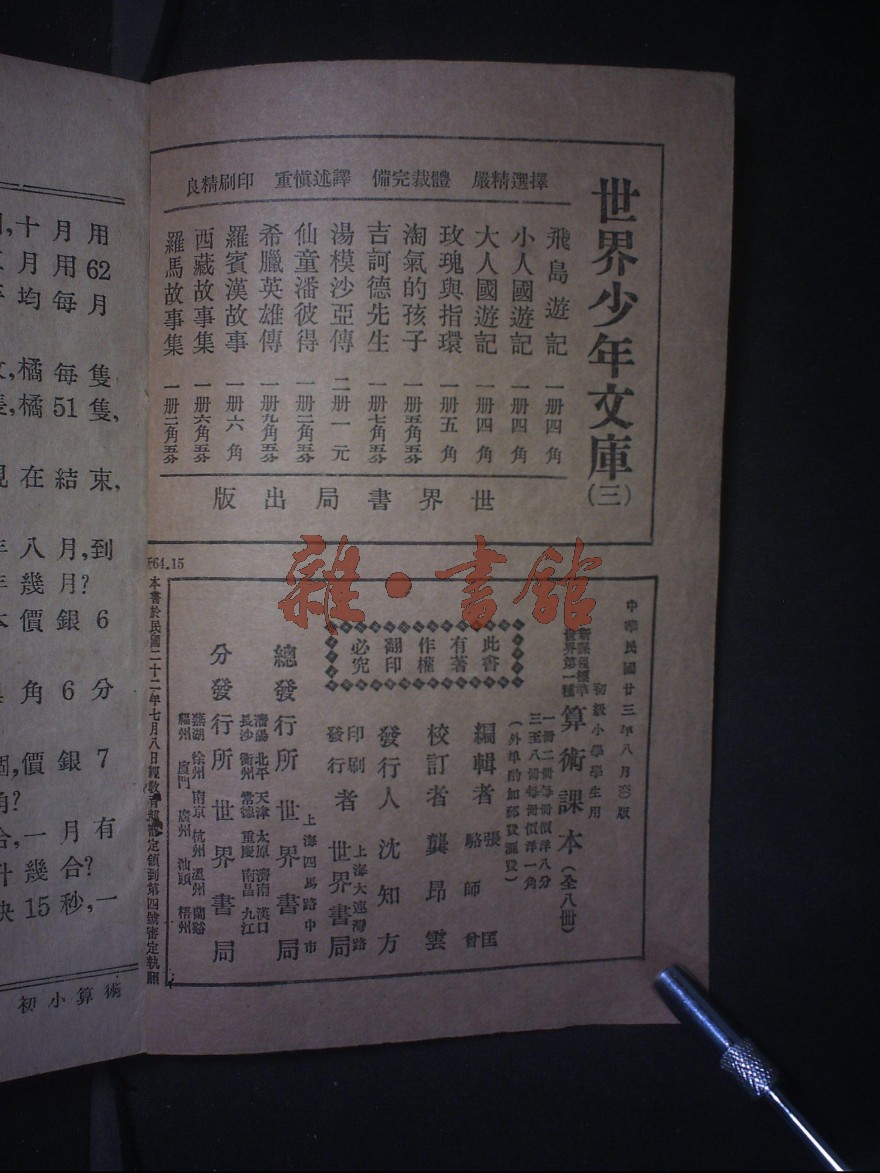 世界少年文庫(三)
擇選精嚴　體裁完備　譯述愼重　印刷精良
飛島遊記　一册四角
小人國遊記　一册四角
大人國遊記　一册四角
玫瑰與指環　一册五角
淘氣的孩子　一册五角五分
吉訶德先生　一册七角五分
湯模沙亞傳　二册一元
仙童潘彼得　一册二角五分
希臘英雄傳　一册九角五分
羅賓漢故事　一册六角
西藏故事集　一册六角五分
羅馬故事集　一册二角五分
世界書局出版
中華民國廿三年八月 版
新課程標準
世界第一種
初級小學學生用
算術課本(全八册)
一册二册每册價洋八分
三至八册每册價洋一角
(外埠酌加郵費滙費)
此書
有著
作權
翻印
必究
編輯者　張匡
駱師曾
校訂者　龔昂雲
發行人　沈知方
印刷
發行
者　上海大連灣路
世界書局
總發行所　上海四馬路中市
世界書局
分發行所
瀋陽　北平　天津　太原　濟南　漢口
長沙　衡州　常德　重慶　南昌　九江
蕪湖　徐州　南京　杭州　溫州　蘭谿
福州　廈門　廣州　汕頭　梧州
世界書局
64.15
本書於民國二十二年七月八日經教育部審定領到第四號審定執照
,十月用
月用62
均每月
,橘每隻
,橘51隻,
在結束,
八月,到
幾月?
價銀6
角6分
,價銀7
角?
,一月有
幾合?
15秒,一
初小算術
雜·書館